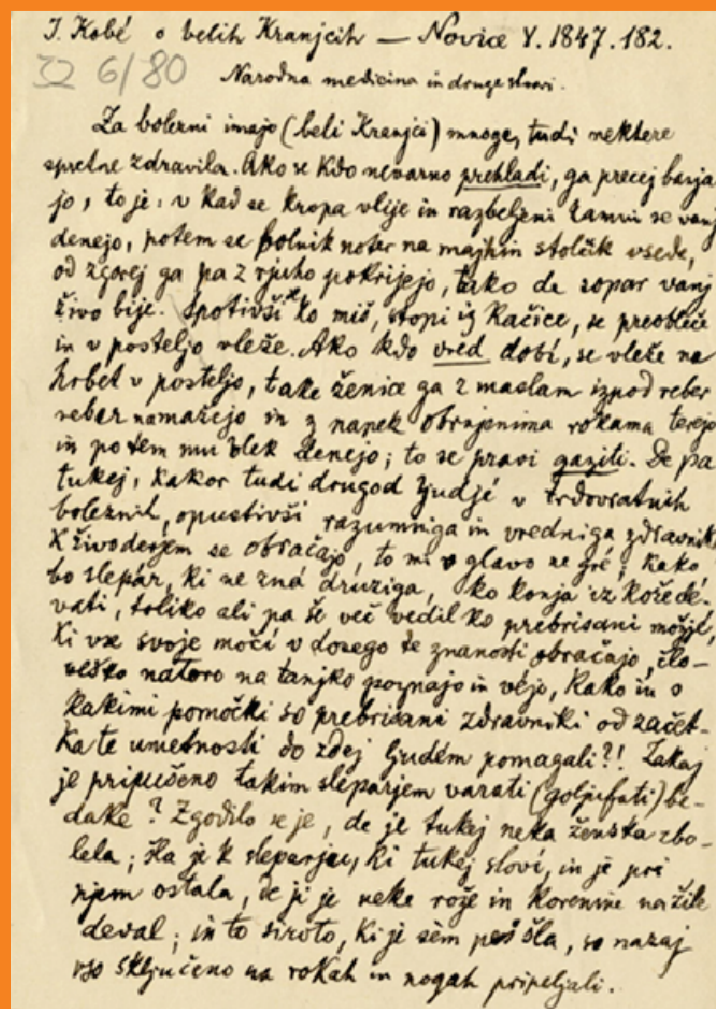 J. Kobé o belih Kranjcih — Novice V. 1847. 182.
6/80
Narodna medicina in druge stvari.
Za bolezni imajo (beli Kranjci) mnoge, tudi nektere
spretne zdravila. Ako se kdo nevarno prehladi, ga precej banja
jo, to je: v kad se kropa vlije in razbeljeni kamni se vanj
denejo, potem se bolnik noter na majhin stolčik vsede,
od zgorej ga pa z rjuho pokrijejo, tako de sopar vanj
živo bije. Spotivši se ko miš, stopi iz kačice, se preobleče
in v posteljo vleže. Ako kdo vred dobí, se vleže na
hrbet v posteljo, take ženice ga z maslam izpod reber
reber namažejo in z napek obrnjenima rokama terejo
in potem mu vlek denejo; to se pravi gaziti. De pa
tukej, kakor tudi drugod ljudjé v trdovratnih
boleznih, opustivši razumniga in vredniga zdravnika
k živoderjem se obračajo, to mi v glavo ne gré; kako
bo slepar, ki ne zná druziga, ko konja iz kože dé-
vati, toliko ali pa še več vedil ko prebrisani možjé,
ki vse svoje močí v dosego te znanosti obračajo, člo-
veško natoro na tanjko poznajo in véjo, kako in s
kakimi pomočki so prebrisani zdravniki od začet-
ka te umetnosti do zdej ljudém pomagali?! Zakaj
je pripušeno takim sleparjem varati (goljufati) be-
dake? Zgodilo se je, de je tukej neka ženska zbo-
lela; šla je k sleparju, ki tukej sloví, in je pri
njem ostala, de ji je neke rože in korenine na žile
deval; in to siroto, ki je sèm peš šla, so nazaj
vso sključeno na rokah in nogah pripeljali.